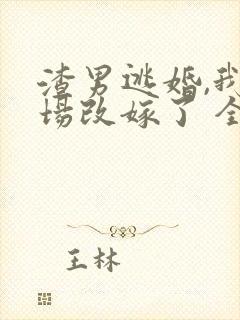 渣男逃婚,我
场改嫁了全
王林